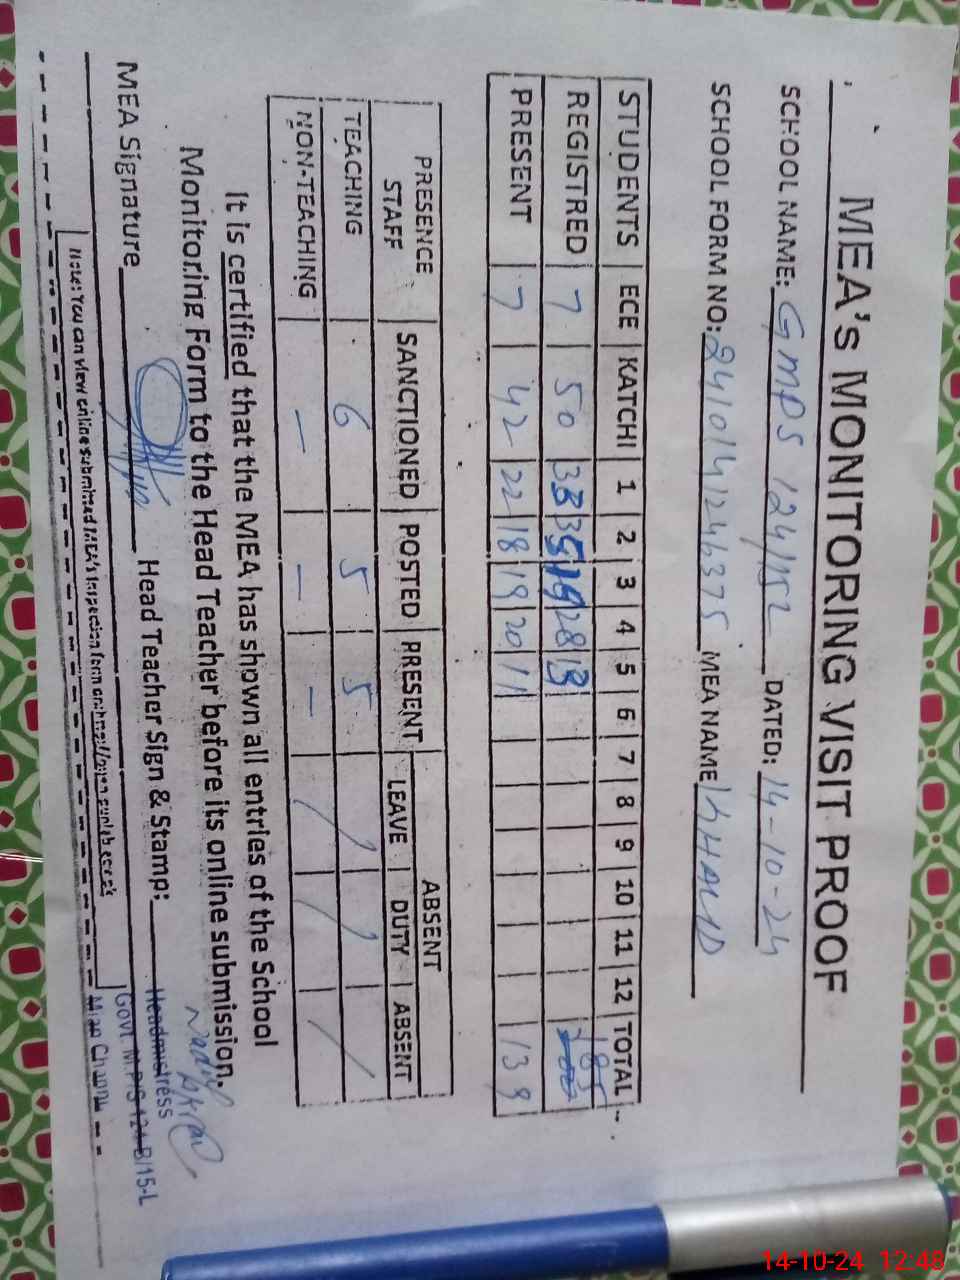 MEA'S MONITORING VISIT PROOF
SCHOOL NAME: GMPS 124/15L DATED: 14-10-24
SCHOOL FORM NO: MEA NAME KHALID
STUDENTS ECE KATCHI 1 2 3 4 5 6 7 8 9 10 11 12 TOTAL
REGISTRED 7 50 28 185
PRESENT 7 42 22 18 19 20 11 139
PRESENCE STAFF SANCTIONED POSTED PRESENT ABSENT
LEAVE DUTY ABSENT
TEACHING 6 5 5 / / /
NON-TEACHING — — — / / /
It is certified that the MEA has shown all entries of the School
Monitoring Form to the Head Teacher before its online submission.
MEA Signature Head Teacher Sign & Stamp:
Headmistress
Govt. M.P/S 124-B/15-L
Mian Channu
Note: You can view online submitted MEA's Inspection form
14-10-24 12:48